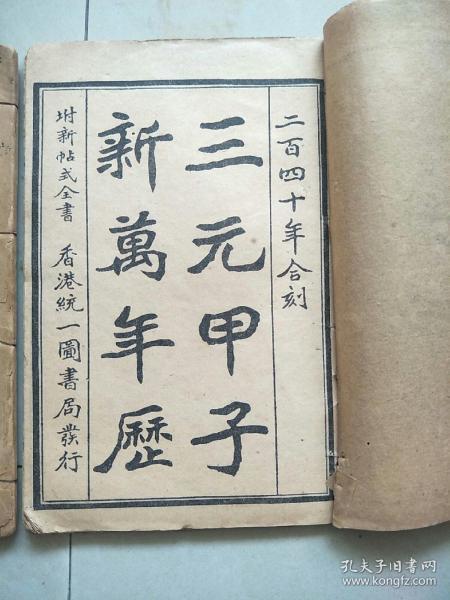 二百四十年合刻
三元甲子
新萬年歷
坿新帖式全書 香港統一圖書局發行
孔夫子旧书网
www.kongfz.com